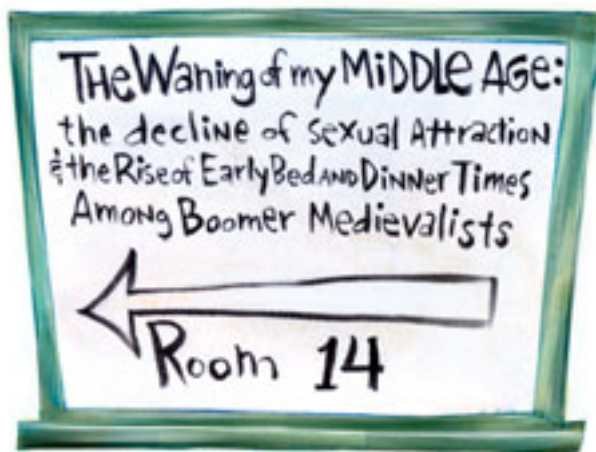 THE WANING of my MIDDLE AGE:
the decline of Sexual Attraction
& the Rise of Early Bed AND DINNER Times
AMONG BOOMER Medievalists
Room 14